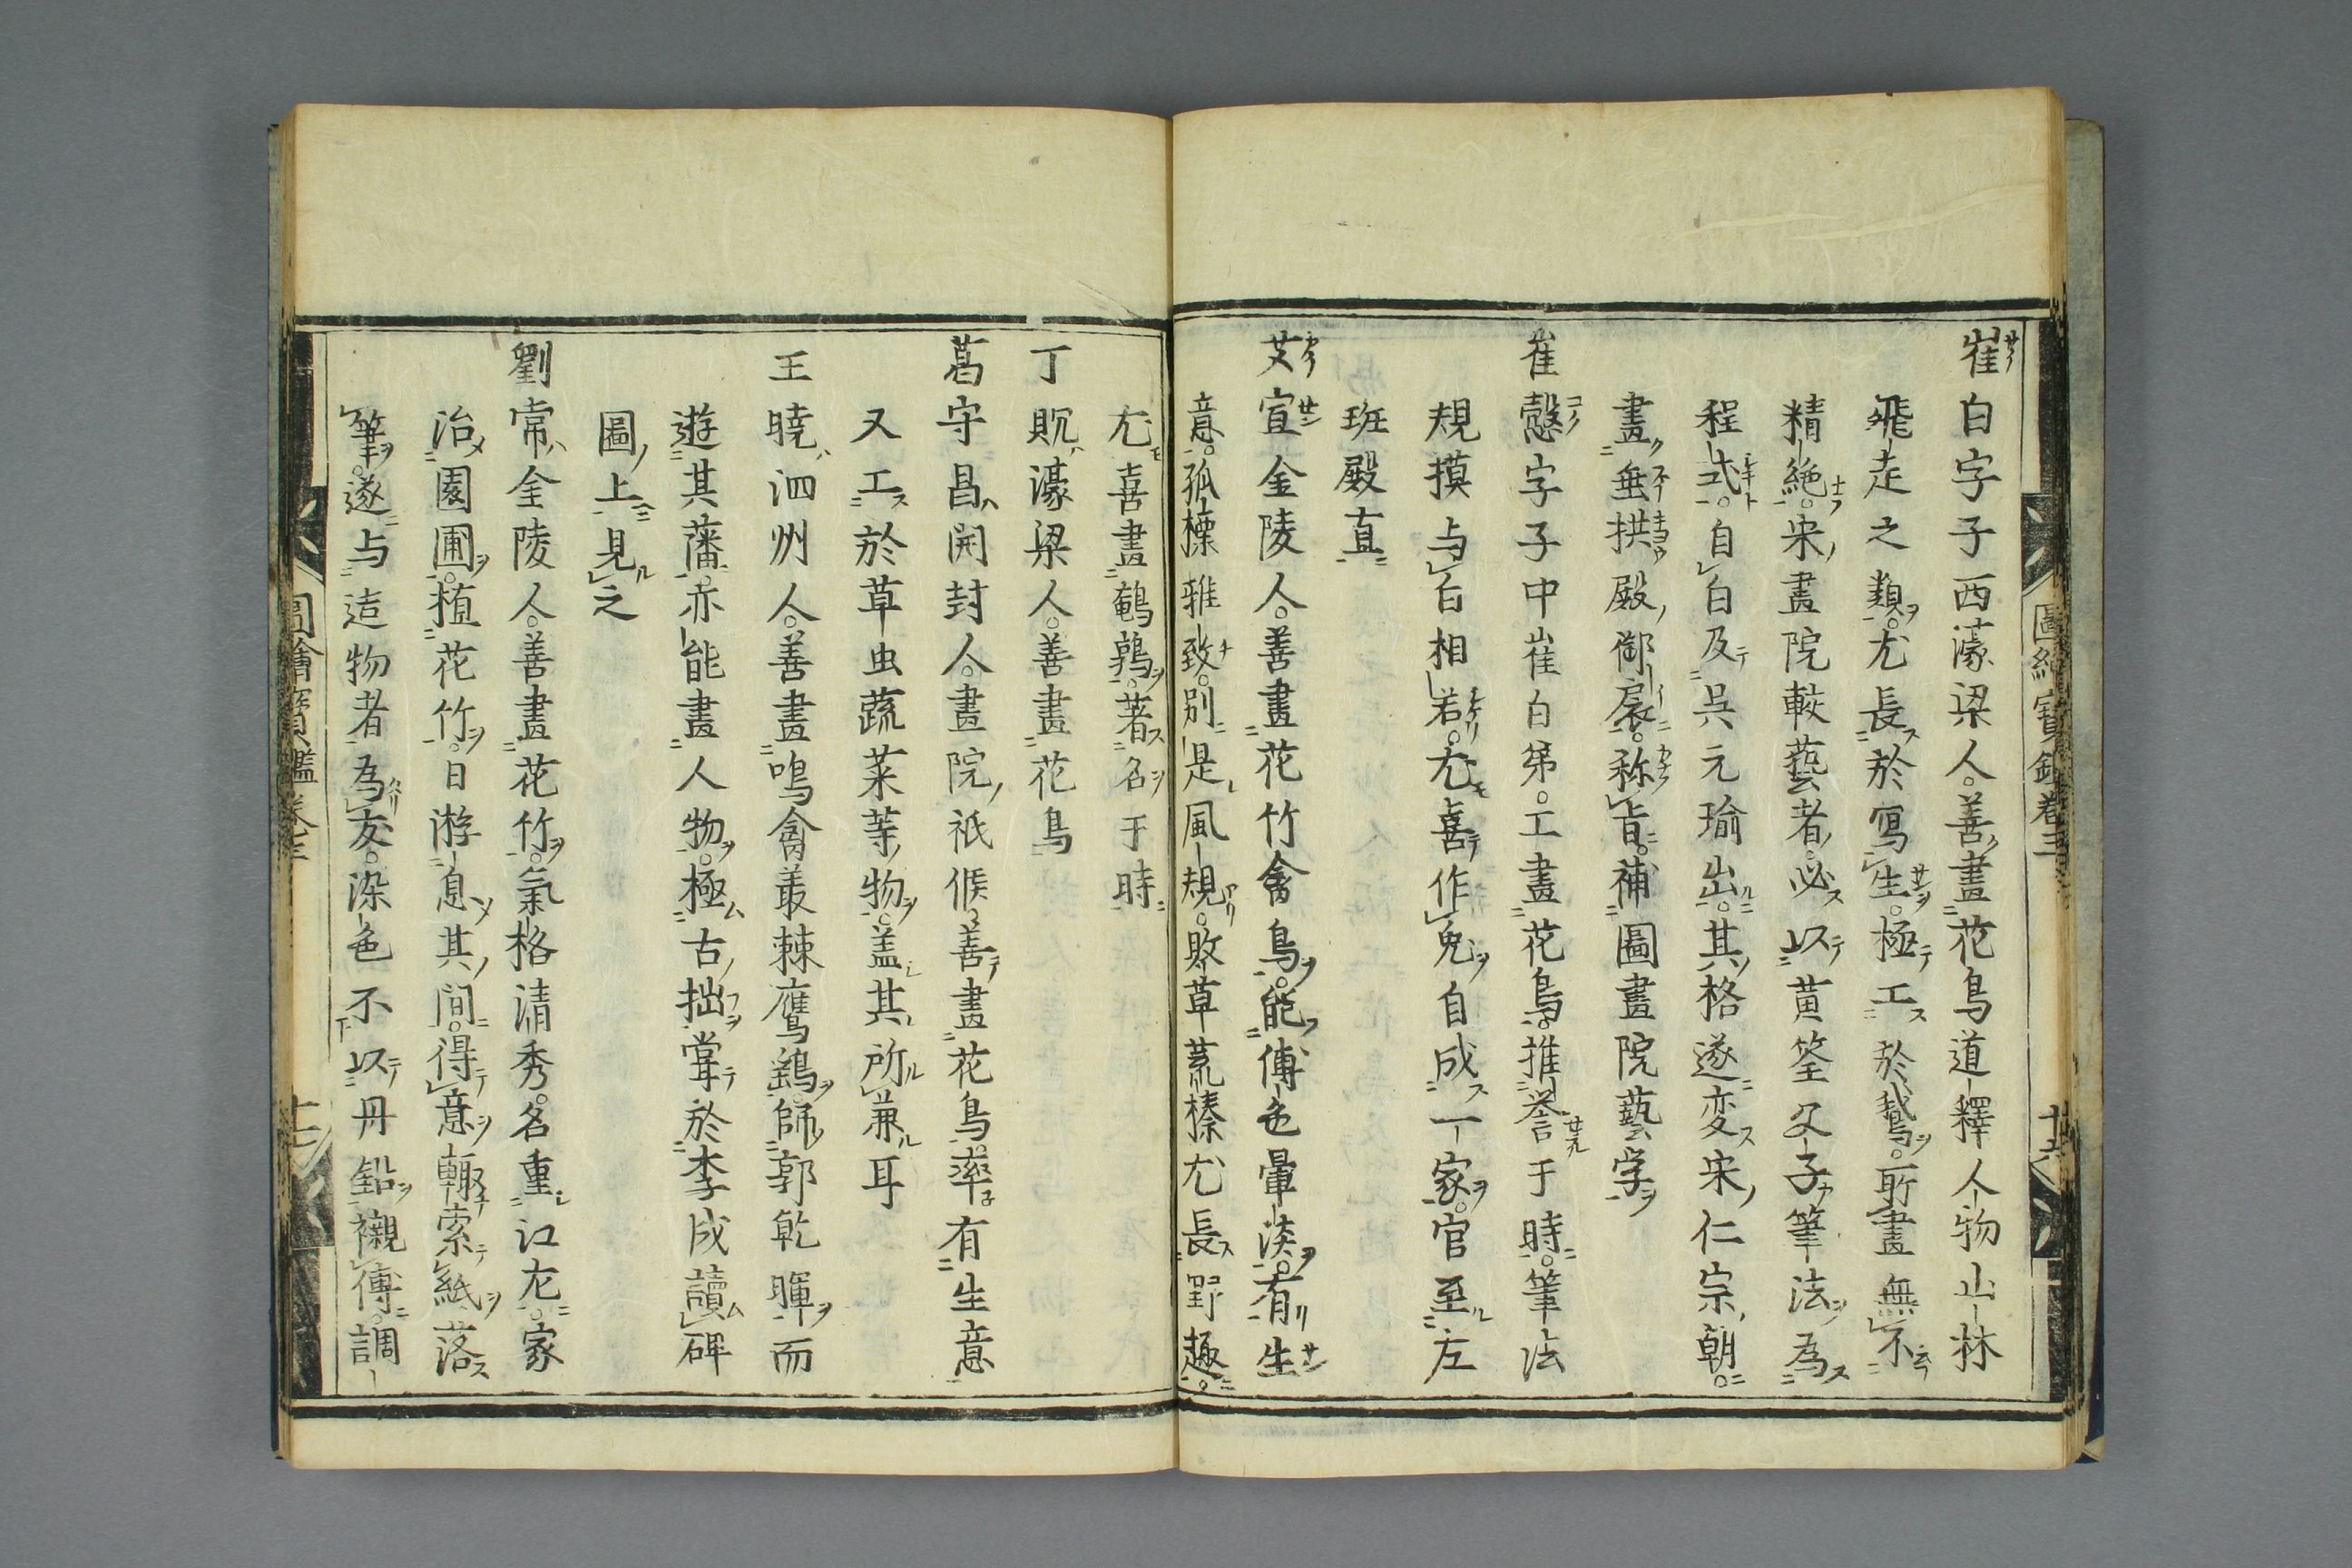 崔白字子西濠梁人善畫花鳥道釋人物山林
飛走之類尤長於寫生極工於鵞所畫無不
精絶宋畫院較藝者必以黄筌父子筆法為
程式自白及呉元瑜出其格遂変宋仁宗朝
畫垂拱殿御扆称旨補圖畫院藝学
崔愨字子中崔白弟工畫花鳥推誉于時筆法
規摸与白相若尤喜作兎自成一家官至左
班殿直
艾宣金陵人善畫花竹禽鳥能傅色暈淡有生
意孤標雅致別是風規敗草荒榛尤長野趣
尤喜畫鵪鶉著名于時
丁貺濠梁人善畫花鳥
葛守昌開封人畫院祇候善畫花鳥率有生意
又工於草虫蔬菜䓁物盖其所兼耳
王暁泗州人善畫鳴禽叢棘鷹鷂師郭乾暉而
遊其藩亦能畫人物極古拙甞於李成讀碑
圖上見之
劉常金陵人善畫花竹氣格清秀名重江左家
治園圃植花竹日游息其間得意輙索紙落
筆遂与造物者為友染色不以丹鉛襯傅調
圖繪寳鑑卷三
十六
圖繪寳鑑卷三
十七